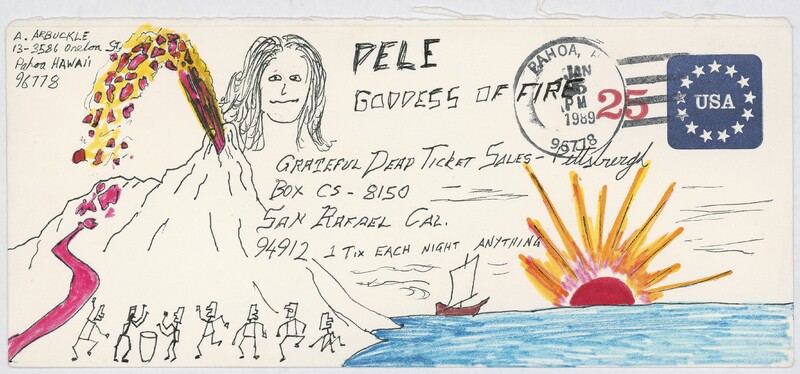 A. ARBUCKLE
13-3586 St.
Pahoa HAWAII
96778
PELE
GODDESS OF FIRE
PAHOA,
JAN
PM
1989
96778
25
USA
GRATEFUL DEAD TICKET SALES - Pittsburgh
BOX CS - 8150
SAN RAFAEL CAL.
94912 1 TIX EACH NIGHT ANYTHING